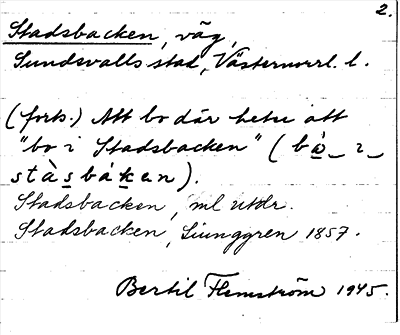 2.
Stadsbacken, väg,
Sundsvalls stad, Västernorrl. l.
(forts.) Att bo där hette att
"bo i Stadsbacken" (bo_ ı_
stàsbákan).
Stadsbacken, ml uttr.
Stadsbacken, Ljunggren 1857.
Bertil Flemström 1945.